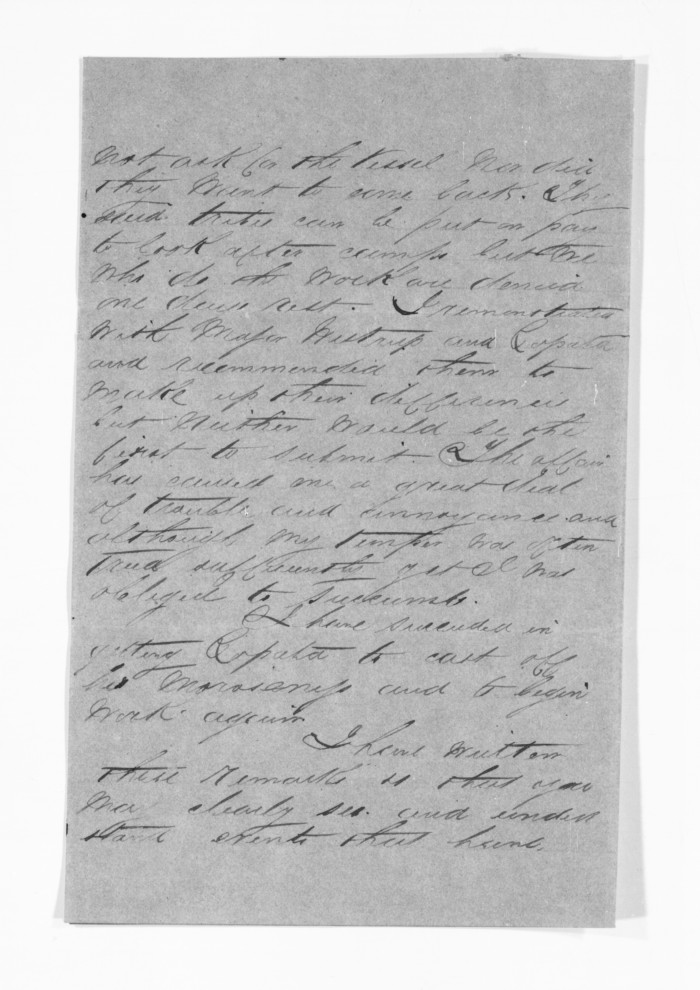 not ask for the Vessel Nor did
they Want to come back. They
said tribes can be put on pay
to look after camps but we
Who do the Work are denied
one days rest. I remonstrated
With Major and Zapata
and recommended them to
make up their differences
but Neither Would be the
first to submit. The affair
has caused me a great deal
of trouble and annoyance and
although my temper was often
tried sufficiently yet I was
obliged to succumb.
I have succeeded in
getting Zapata to cast off
his Moroseness and to begin
Work again
I have Written
these remarks so that you
May clearly see and under
stand events that have